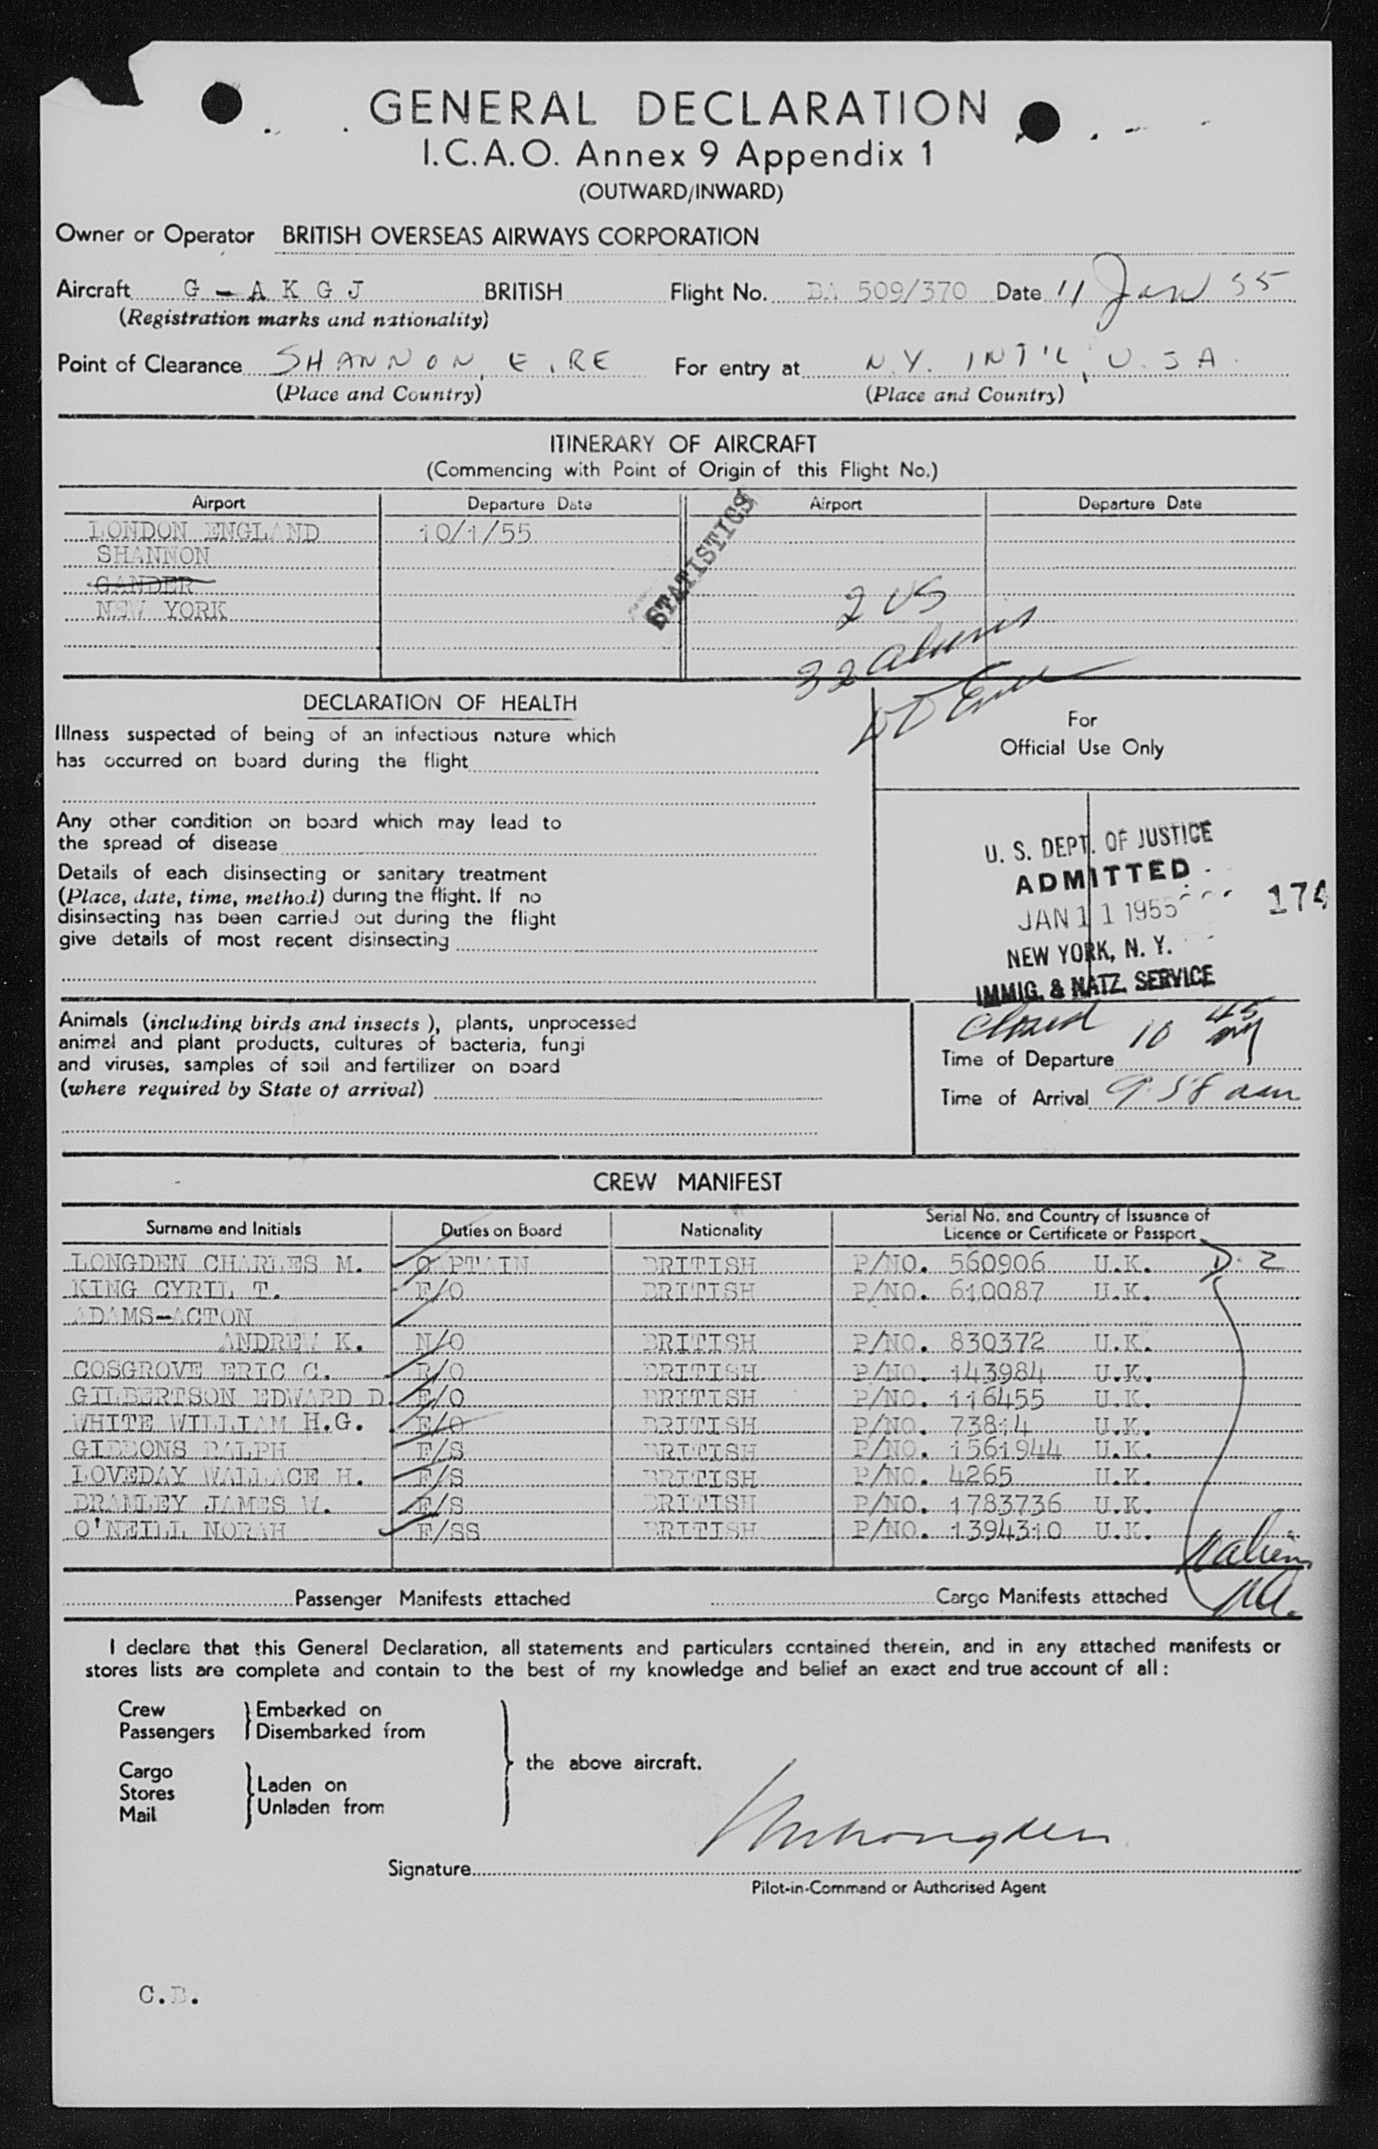 GENERAL DECLARATION
I.C.A.O. Annex 9 Appendix 1
(OUTWARD/INWARD)
Owner or Operator BRITISH OVERSEAS AIRWAYS CORPORATION
Aircraft G - A K G J BRITISH Flight No. BA 509/370 Date 11 Jan 55
(Registration marks and nationality)
Point of Clearance SHANNON, EIRE For entry at N.Y. INT'L, U.S.A.
(Place and Country) (Place and Country)
ITINERARY OF AIRCRAFT
(Commencing with Point of Origin of this Flight No.)
Airport Departure Date Airport Departure Date
LONDON ENGLAND 10/1/55
SHANNON
GANDER
NEW YORK
STATISTICS
2 US
32 aliens
DECLARATION OF HEALTH
Illness suspected of being of an infectious nature which
has occurred on board during the flight
Any other condition on board which may lead to
the spread of disease
Details of each disinsecting or sanitary treatment
(Place, date, time, method) during the flight. If no
disinsecting has been carried out during the flight
give details of most recent disinsecting
For
Official Use Only
U. S. DEPT. OF JUSTICE
ADMITTED
JAN 11 1955 174
NEW YORK, N. Y.
IMMIG. & NATZ. SERVICE
Animals (including birds and insects ), plants, unprocessed
animal and plant products, cultures of bacteria, fungi
and viruses, samples of soil and fertilizer on board
(where required by State of arrival)
Closed 10 45
Time of Departure
Time of Arrival 9 58 am
CREW MANIFEST
Surname and Initials Duties on Board Nationality Serial No. and Country of Issuance of
Licence or Certificate or Passport
LONGDEN CHARLES M. CAPTAIN BRITISH P/NO. 560906 U.K. D-2
KING CYRIL T. F/O BRITISH P/NO. 610087 U.K.
ADAMS-ACTON
ANDREW K. N/O BRITISH P/NO. 830372 U.K.
COSGROVE ERIC C. R/O BRITISH P/NO. 143984 U.K.
GILBERTSON EDWARD D. E/O BRITISH P/NO. 116455 U.K.
WHITE WILLIAM H.G. E/O BRITISH P/NO. 73814 U.K.
GIBBONS RALPH F/S BRITISH P/NO. 1561944 U.K.
LOVEDAY WALLACE H. F/S BRITISH P/NO. 4265 U.K.
BRAMLEY JAMES W. F/S BRITISH P/NO. 1783736 U.K.
O'NEILL NORAH F/SS BRITISH P/NO. 1394310 U.K.
Passenger Manifests attached Cargo Manifests attached
I declare that this General Declaration, all statements and particulars contained therein, and in any attached manifests or
stores lists are complete and contain to the best of my knowledge and belief an exact and true account of all :
Crew Embarked on
Passengers Disembarked from
the above aircraft.
Cargo
Stores Laden on
Mail Unladen from
Signature
Pilot-in-Command or Authorised Agent
C.B.